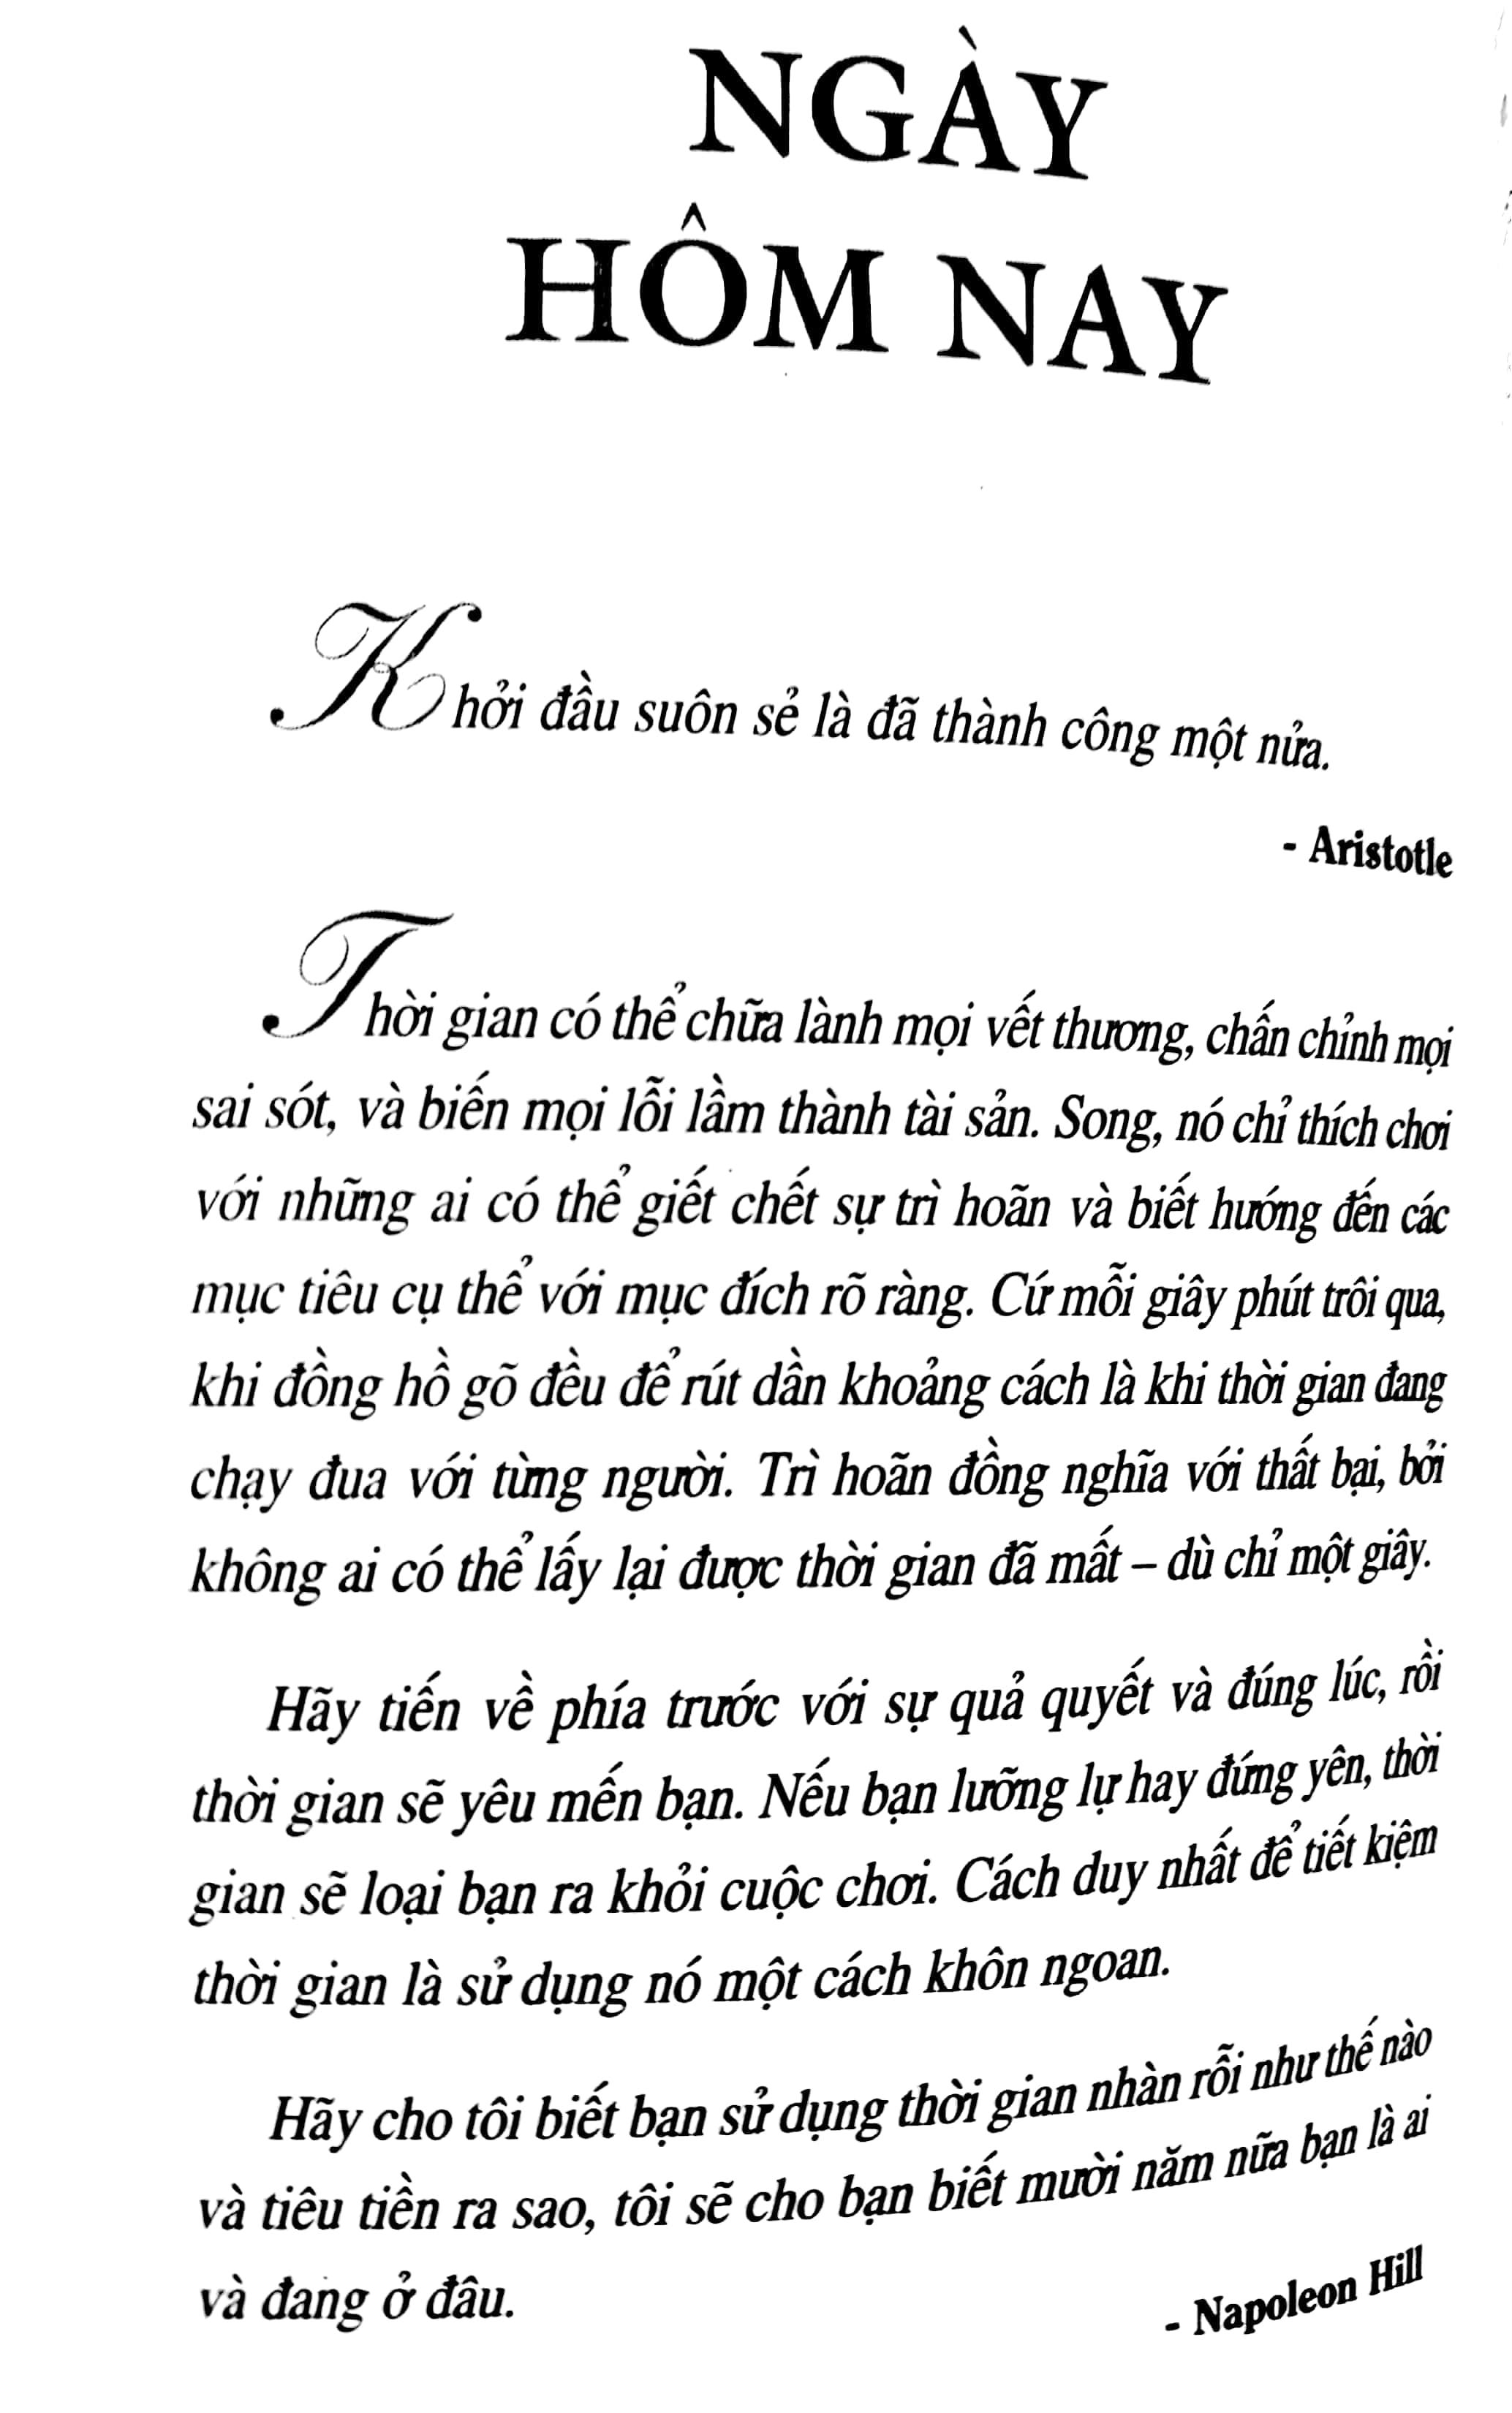 NGÀY
HÔM NAY
Khởi đầu suôn sẻ là đã thành công một nửa.
- Aristotle
Thời gian có thể chữa lành mọi vết thương, chấn chỉnh mọi
sai sót, và biến mọi lỗi lầm thành tài sản. Song, nó chỉ thích chơi
với những ai có thể giết chết sự trì hoãn và biết hướng đến các
mục tiêu cụ thể với mục đích rõ ràng. Cứ mỗi giây phút trôi qua,
khi đồng hồ gõ đều để rút dần khoảng cách là khi thời gian đang
chạy đua với từng người. Trì hoãn đồng nghĩa với thất bại, bởi
không ai có thể lấy lại được thời gian đã mất – dù chỉ một giây.
Hãy tiến về phía trước với sự quả quyết và đúng lúc, rồi
thời gian sẽ yêu mến bạn. Nếu bạn lưỡng lự hay đứng yên, thời
gian sẽ loại bạn ra khỏi cuộc chơi. Cách duy nhất để tiết kiệm
thời gian là sử dụng nó một cách khôn ngoan.
Hãy cho tôi biết bạn sử dụng thời gian nhàn rỗi như thế nào
và tiêu tiền ra sao, tôi sẽ cho bạn biết mười năm nữa bạn là ai
và đang ở đâu.
- Napoleon Hill